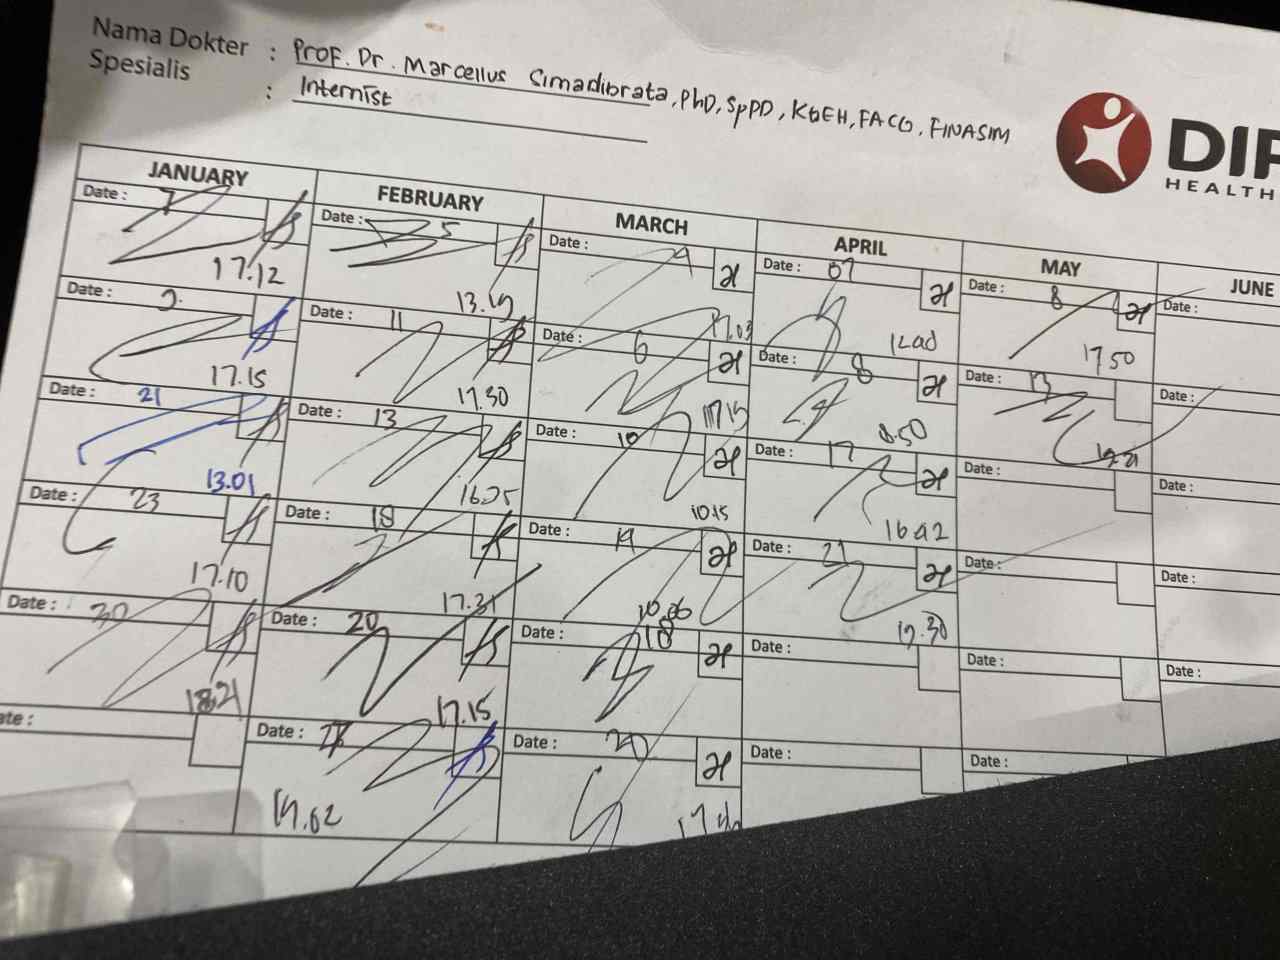 Nama Dokter : Prof. Dr. Marcellus Simadibrata, PhD, SpPD, KGEH, FACG, FINASIM
Spesialis : Internist
DIP
HEALTH
JANUARY FEBRUARY MARCH APRIL MAY JUNE
Date : 7 Date : 5 Date : 4 Date : 07 Date : 8 Date :
17.12 13.19 17.03 17.50
Date : 9 Date : 11 Date : 6 Date : 8 Date : 13 Date :
17.15 17.30 17.15 8.50
Date : 21 Date : 13 Date : 10 Date : 17 Date : Date :
13.01 16.25 10.15 16.42
Date : 23 Date : 18 Date : Date : 21 Date : Date :
17.10 17.31 10.06 17.30
Date : 30 Date : 20 Date : 18 Date : Date : Date :
18.21 17.15
Date : Date : Date : 20 Date : Date :
19.02